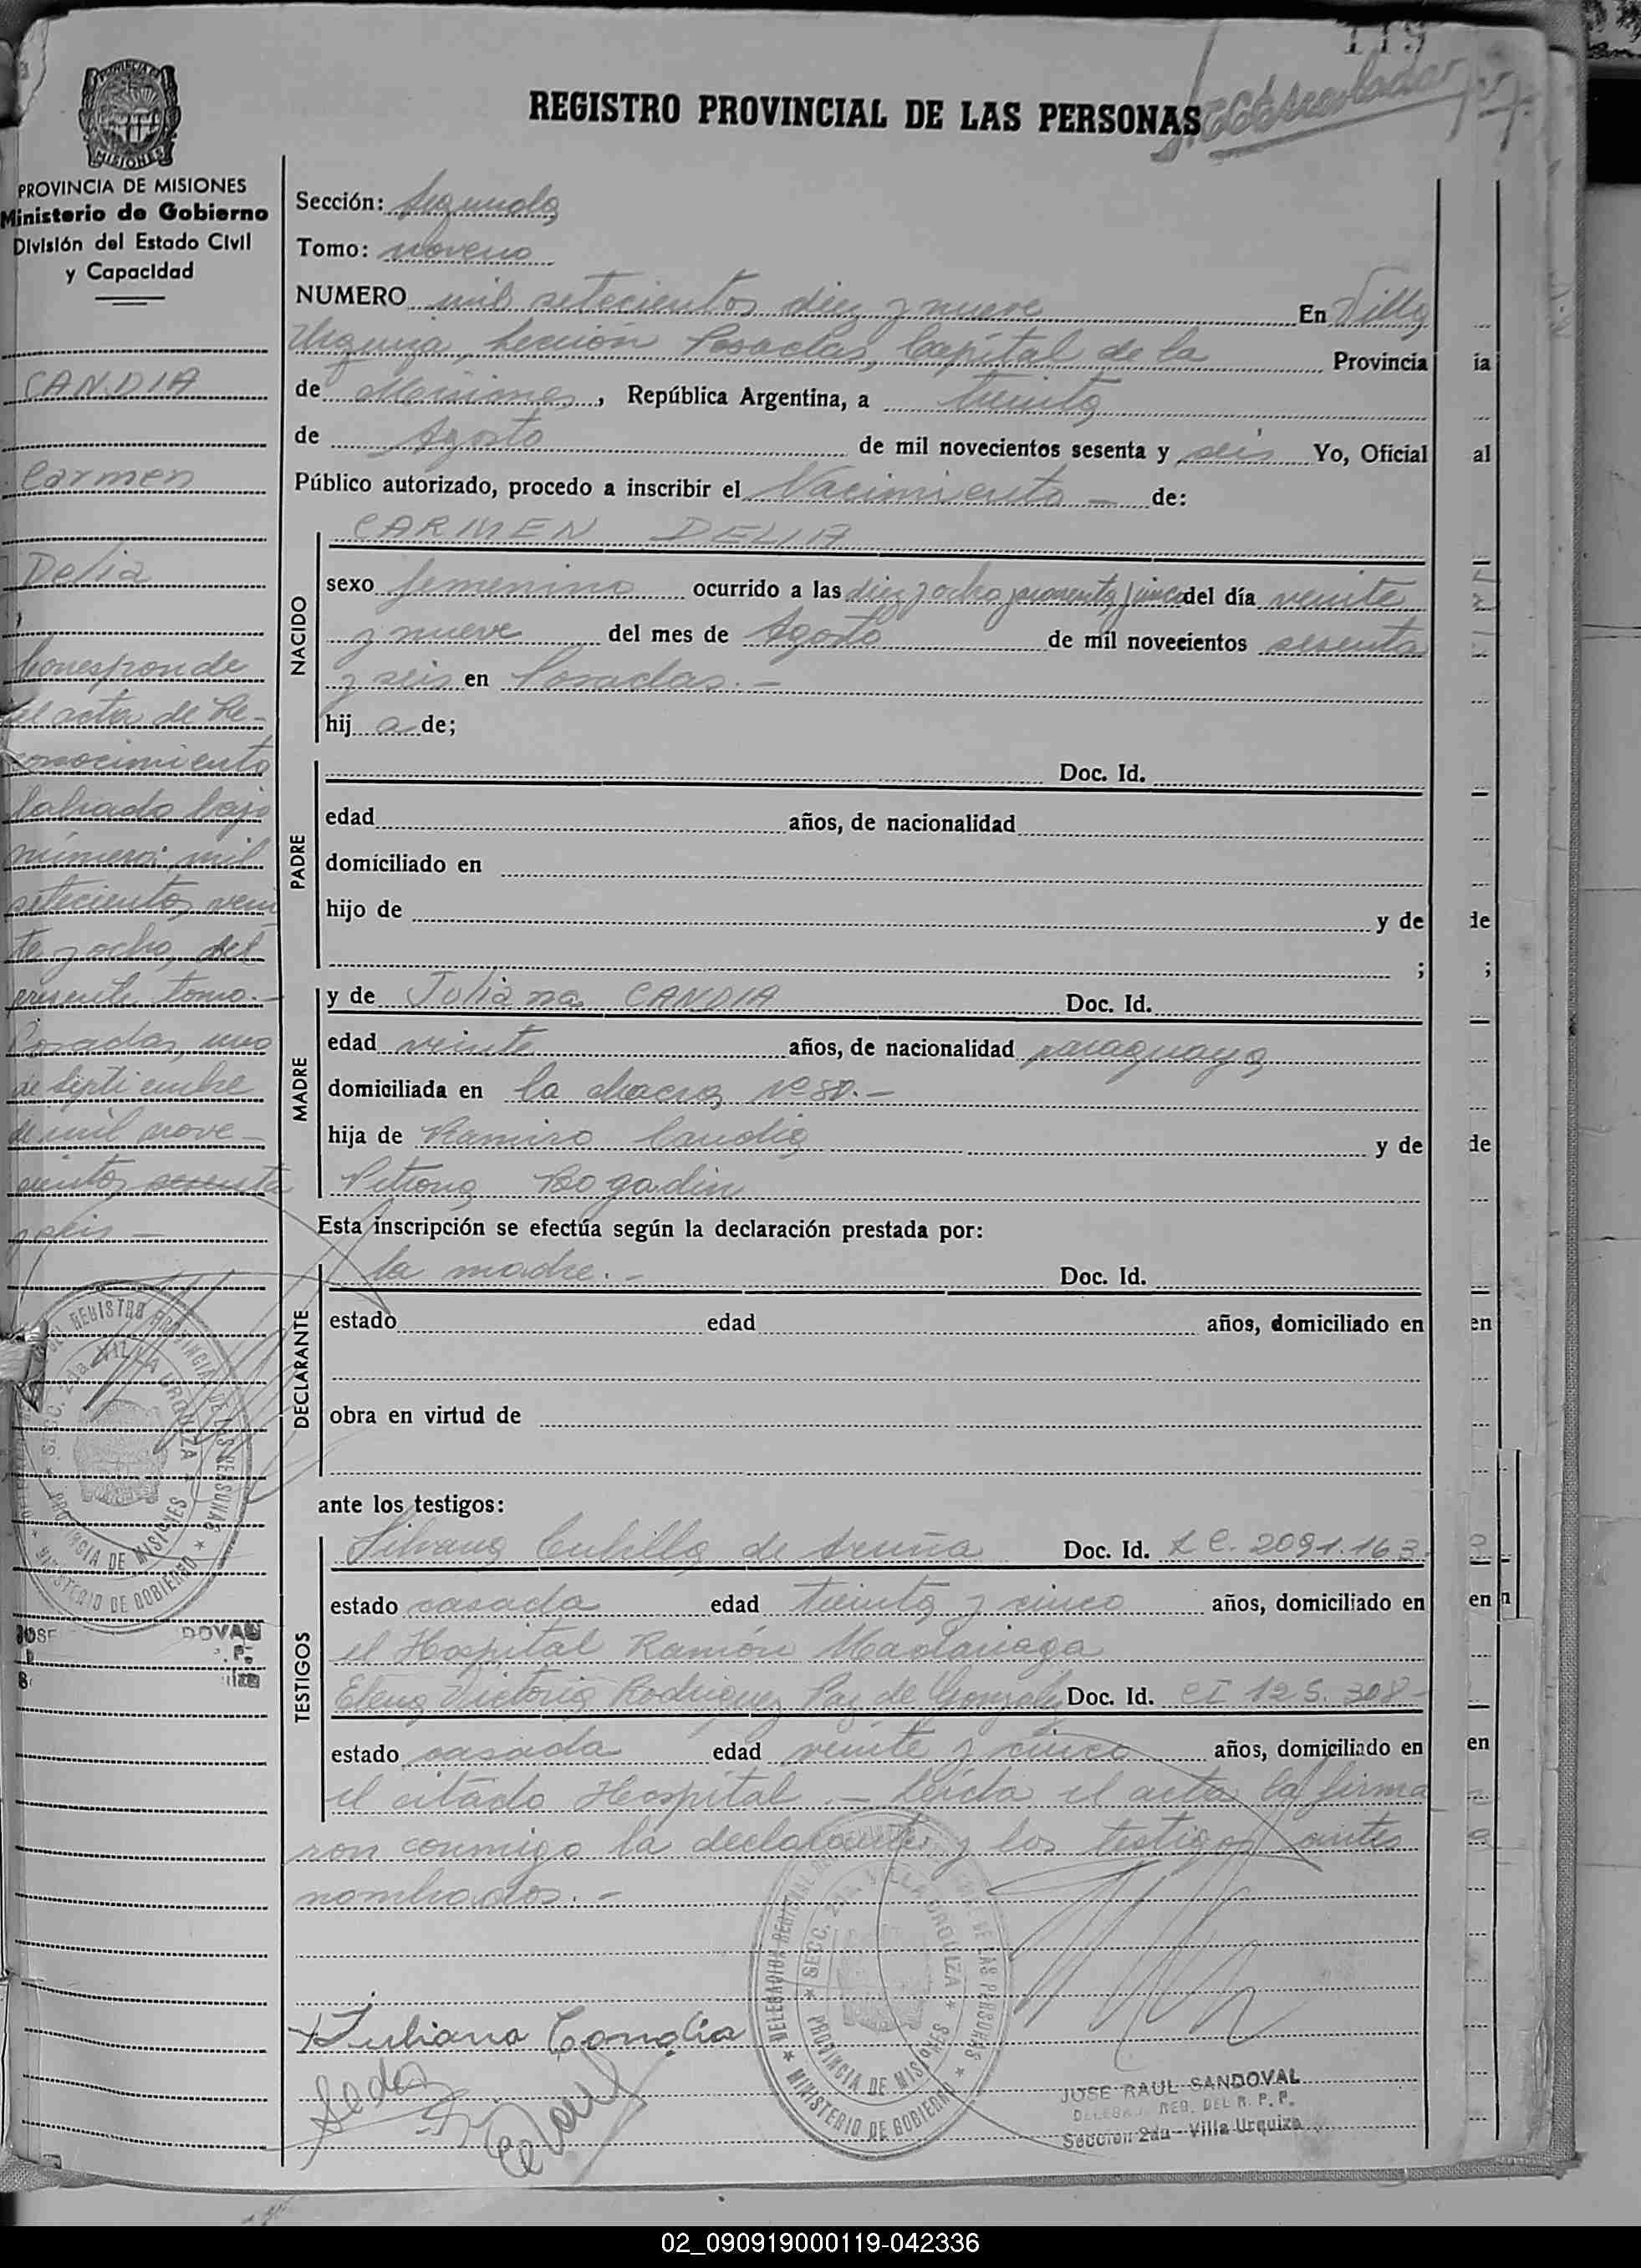 119
REGISTRO PROVINCIAL DE LAS PERSONAS
MISIONES
PROVINCIA DE MISIONES
Ministerio de Gobierno
División del Estado Civil
y Capacidad
CANDIA
Carmen
Delia
Corresponde
al acta de Re-
conocimiento
labrado bajo
número: mil
setecientos vein
te y ocho, del
presente tomo.-
Posadas, uno
de Septiembre
de mil nove-
cientos sesenta
y seis -
Sección: Segunda
Tomo: noveno
NUMERO mil setecientos diez y nueve En Villa
Urquiza, Sección Posadas, Capital de la Provincia
de Misiones, República Argentina, a treinta
de Agosto de mil novecientos sesenta y seis Yo, Oficial
Público autorizado, procedo a inscribir el Nacimiento - de:
NACIDO
CARMEN DELIA
sexo femenino ocurrido a las diez y ocho y cinco del día veinte
y nueve del mes de Agosto de mil novecientos sesenta
y seis en Posadas.-
hij a de;
PADRE
Doc. Id.
edad años, de nacionalidad
domiciliado en
hijo de y de
;
MADRE
y de Juliana CANDIA Doc. Id.
edad veinte años, de nacionalidad paraguaya
domiciliada en la chacra Nº 80.-
hija de Ramiro Candia y de
Petrona Bogadin
Esta inscripción se efectúa según la declaración prestada por:
DECLARANTE
la madre.- Doc. Id.
estado edad años, domiciliado en
obra en virtud de
ante los testigos:
TESTIGOS
Silvana Cubilla de Doc. Id. L C. 2091.163.
estado casada edad treinta y cinco años, domiciliado en
el Hospital Ramón Madariaga
Elena Victoria Rodriguez Paz de Gonzalez Doc. Id. CI 125.308-
estado casada edad veinte y cinco años, domiciliado en
el citado Hospital.- Leída el acta la firma
ron conmigo la declarante y los testigos antes
nombrados.-
DELEGACION REGISTRO PROVINCIAL DE LAS PERSONAS
SECC. 2da. VILLA URQUIZA
PROVINCIA DE MISIONES
MINISTERIO DE GOBIERNO
Juliana Candia
JOSE RAUL SANDOVAL
DELEGA. REG. DEL R. P. P.
Sección 2da - Villa Urquiza
02_090919000119-042336